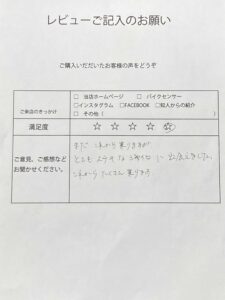 レビューご記入のお願い
ご購入いただいたお客様の声をどうぞ
ご来店のきっかけ
□ 当店ホームページ □ バイクセンサー
□インスタグラム □FACEBOOK □知人からの紹介
□ その他（ ）
満足度 ☆ ☆ ☆ ☆ ☆
ご意見、ご感想など
お聞かせください。
まだ これから 乗りますが
とても に 出会えました。
これから たくさん 乗ります